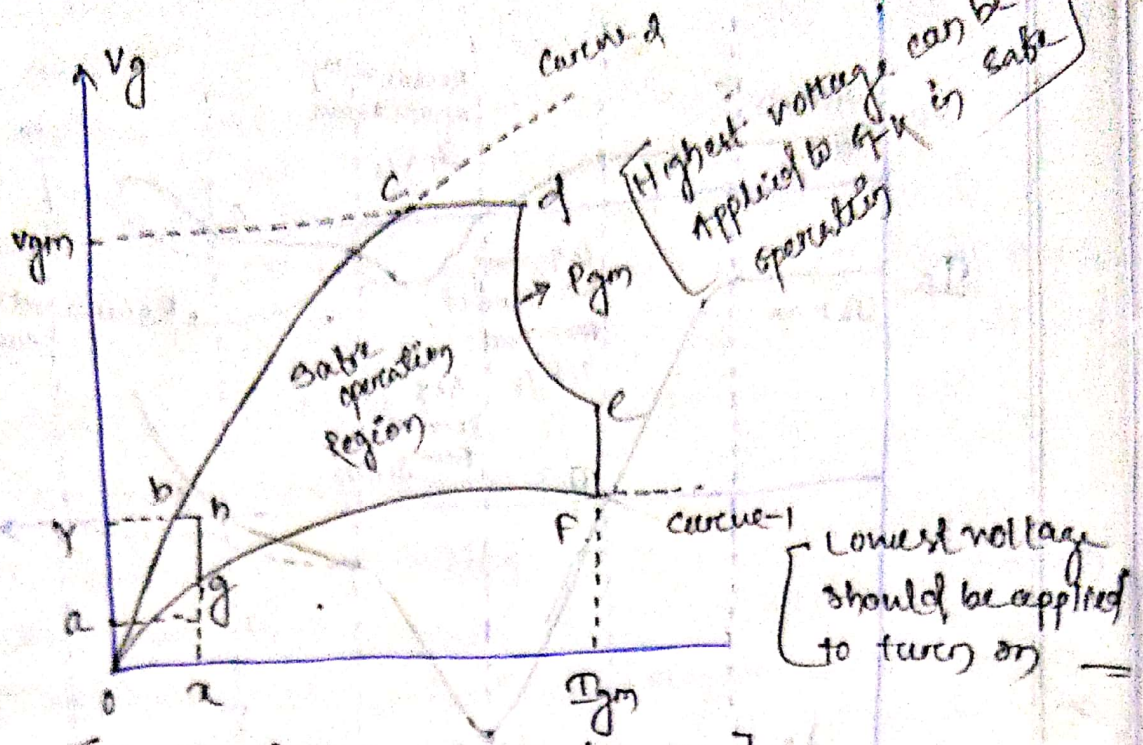 Vg
Curve-2
[Highest voltage can be
Applied to
in safe
operation]
C
d
Vgm
→ Pgm
Safe
operation
Region
e
b
h
Y
F
Curve-1
[Lowest voltage
should be applied
to turn on
g
a
0
x
Igm